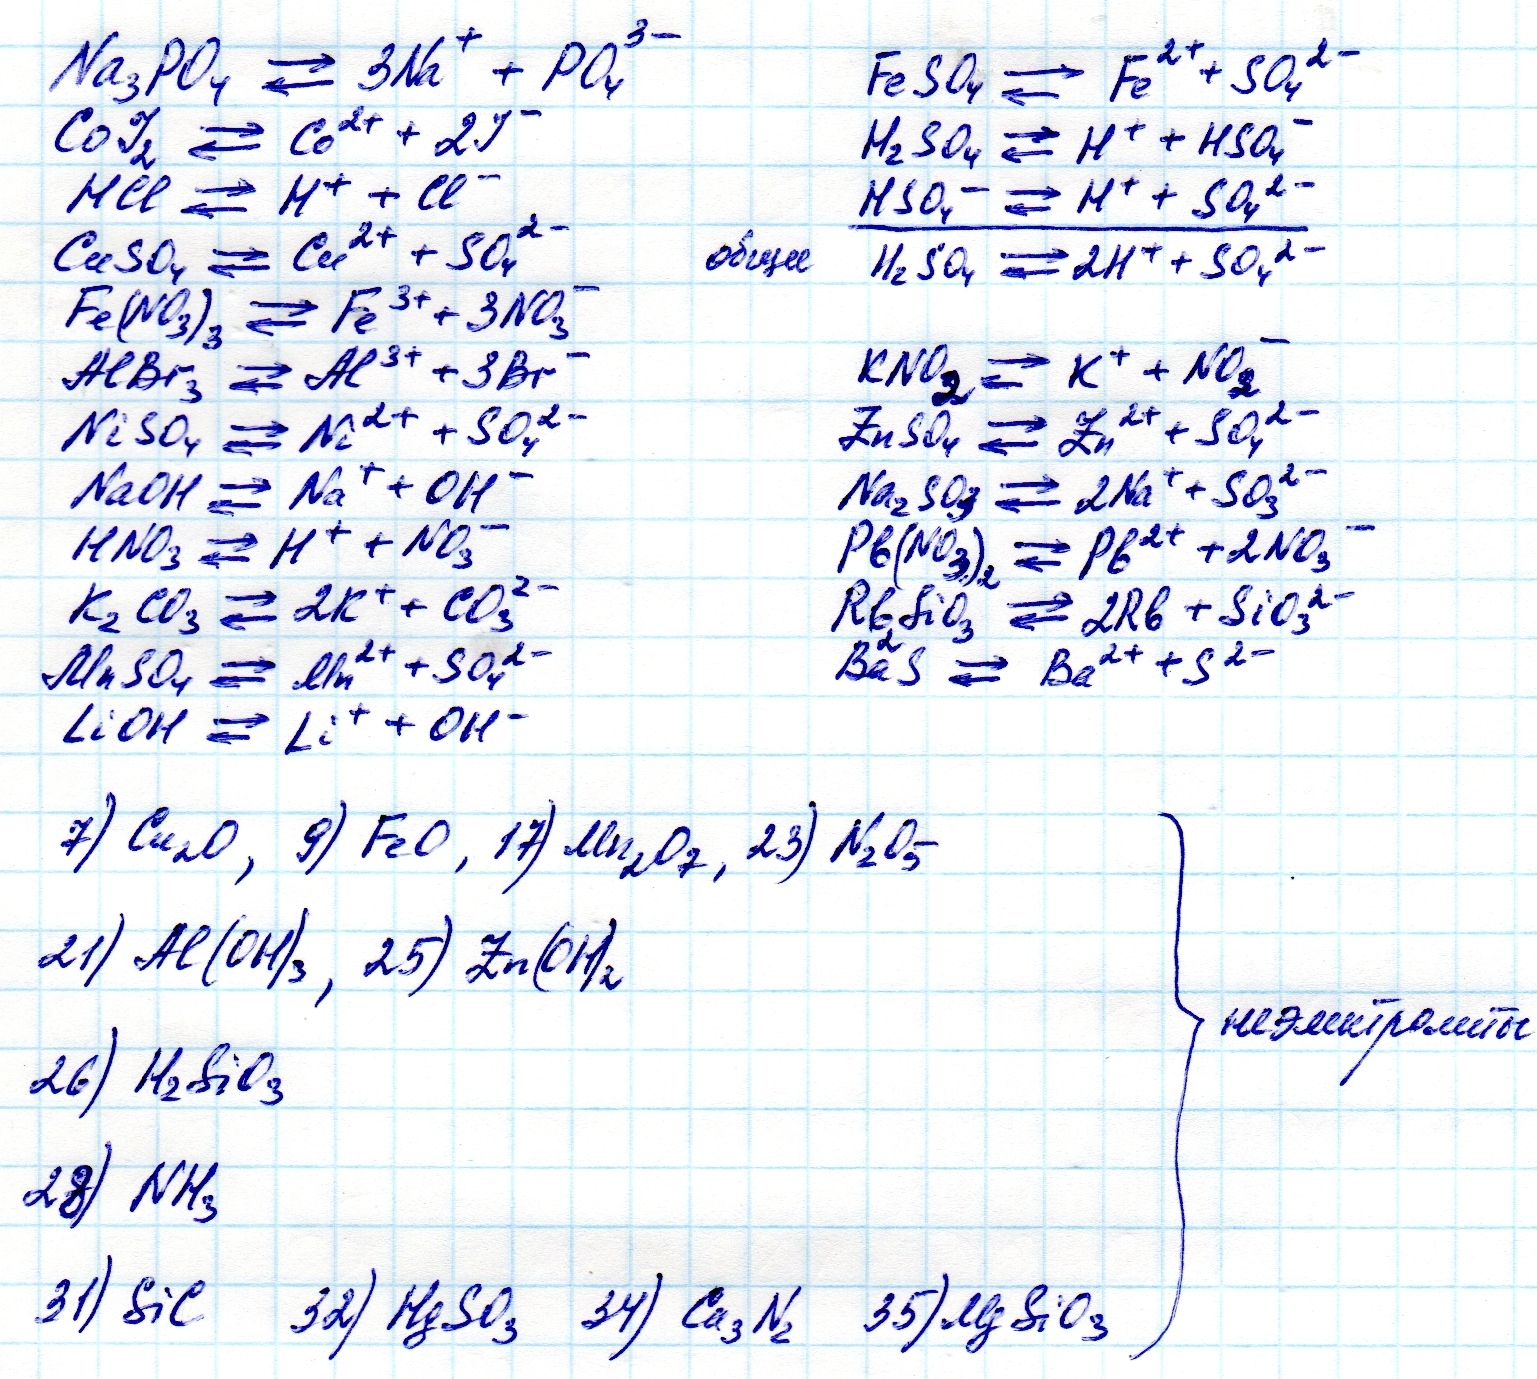 Na₃PO₄ ⇄ 3Na⁺ + PO₄³⁻
CoJ₂ ⇄ Co²⁺ + 2J⁻
HCl ⇄ H⁺ + Cl⁻
CuSO₄ ⇄ Cu²⁺ + SO₄²⁻
Fe(NO₃)₃ ⇄ Fe³⁺ + 3NO₃⁻
AlBr₃ ⇄ Al³⁺ + 3Br⁻
NiSO₄ ⇄ Ni²⁺ + SO₄²⁻
NaOH ⇄ Na⁺ + OH⁻
HNO₃ ⇄ H⁺ + NO₃⁻
K₂CO₃ ⇄ 2K⁺ + CO₃²⁻
MnSO₄ ⇄ Mn²⁺ + SO₄²⁻
LiOH ⇄ Li⁺ + OH⁻
FeSO₄ ⇄ Fe²⁺ + SO₄²⁻
H₂SO₄ ⇄ H⁺ + HSO₄⁻
HSO₄⁻ ⇄ H⁺ + SO₄²⁻
общее H₂SO₄ ⇄ 2H⁺ + SO₄²⁻
KNO₂ ⇄ K⁺ + NO₂⁻
ZnSO₄ ⇄ Zn²⁺ + SO₄²⁻
Na₂SO₃ ⇄ 2Na⁺ + SO₃²⁻
Pb(NO₃)₂ ⇄ Pb²⁺ + 2NO₃⁻
Rb₂SiO₃ ⇄ 2Rb + SiO₃²⁻
BaS ⇄ Ba²⁺ + S²⁻
7) Cu₂O, 9) FeO, 17) Mn₂O₇, 23) N₂O₅
21) Al(OH)₃, 25) Zn(OH)₂
26) H₂SiO₃
неэлектролиты
28) NH₃
31) SiC 32) HgSO₃ 34) Ca₃N₂ 35) MgSiO₃